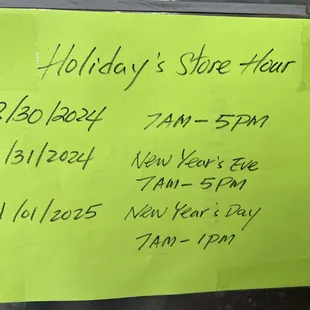 Holiday's Store Hour
2/30/2024 7AM-5PM
/31/2024 New Year's Eve
7AM-5PM
1/01/2025 New Year's Day
7AM-1PM